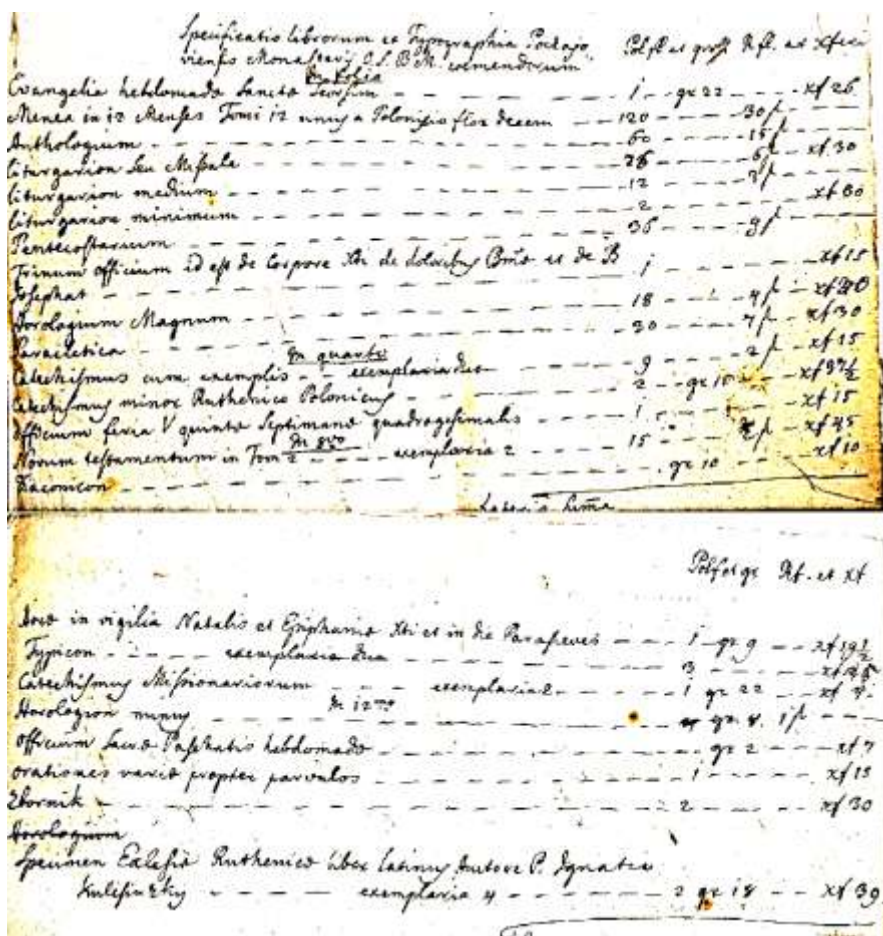 Specificatio librorum ex Typographia Poczajo
viensis Monasterij O.S.B.M. coemendorum Polfl et gross Rfl. ac xferi
in folio
Evangelia hebdomadæ Sanctæ Seorsim 1 gr 22 xf 26
Menea in 12 Menses Tomi 12 unus a Polonis flor decem 120 30 f
Anthologium 60 15 f
Liturgarion seu Missale 26 6 f xf 30
Liturgarion medium 12 3 f
Liturgarion minimum 2 xf 30
Pentecostarium 36 9 f
Trinum officium id est de Corpore Xti de doloribus et de B
Josephat 1 xf 15
Horologium Magnum 18 4 f xf 30
Paracletica 30 7 f xf 30
in quarto
Catechismus cum exemplis exemplaria duo 9 2 f xf 15
Catechismus minor Ruthenico Polonicus 2 gr 10 xf 37½
Officium feria V quintæ Septimanæ quadragesimalis 1 xf 15
in 8vo
Novum testamentum in Tom 2 exemplaria 2 15 f xf 45
Diaconicon gr 10 xf 10
Lateris Suma
Polf et gr Rf. et xf
Horæ in vigilia Natalis et Epiphaniæ Xti et in die Parasceves 1 gr 9 xf 19½
Typicon exemplaria duo 3 xf 45
Catechismus Missionariorum exemplaria 2 1 gr 22 xf
in 12mo
Horologion minus gr 8 1 f
Officium Sacræ Paschatis hebdomadæ gr 2 xf 7
Orationes variæ propter parvulos 1 xf 15
Zbornik 2 xf 30
Horologium
Specimen Ecclesiæ Ruthenicæ liber latinus Autore P. Ignatio
Kulesinzky exemplaria 4 2 gr 18 xf 39